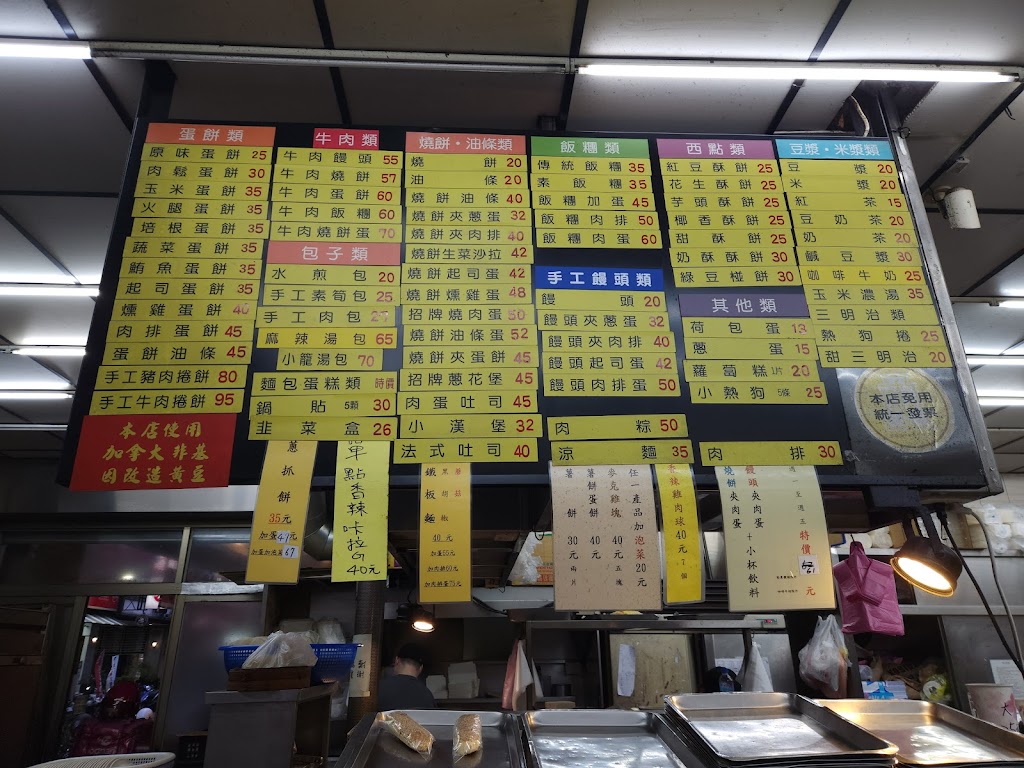 蛋餅類
原味蛋餅 25
肉鬆蛋餅 30
玉米蛋餅 35
火腿蛋餅 35
培根蛋餅 35
蔬菜蛋餅 35
鮪魚蛋餅 35
起司蛋餅 35
燻雞蛋餅 40
肉排蛋餅 45
蛋餅油條 45
手工豬肉捲餅 80
手工牛肉捲餅 95
本店使用
加拿大非基
因改造黃豆
牛肉類
牛肉饅頭 55
牛肉燒餅 57
牛肉蛋餅 60
牛肉飯糰 60
牛肉燒餅蛋 70
包子類
水煎包 20
手工素筍包 25
手工肉包
麻辣湯包 65
小籠湯包 70
麵包蛋糕類 時價
鍋貼 5顆 30
韭菜盒 26
燒餅・油條類
燒餅 20
油條 20
燒餅油條 40
燒餅夾蔥蛋 32
燒餅夾肉排 40
燒餅生菜沙拉 42
燒餅起司蛋 42
燒餅燻雞蛋 48
招牌燒肉蛋 50
燒餅油條蛋 52
燒餅夾蛋餅 45
招牌蔥花堡 45
肉蛋吐司 45
小漢堡 32
法式吐司 40
飯糰類
傳統飯糰 35
素飯糰 35
飯糰加蛋 45
飯糰肉排 50
飯糰肉蛋 60
手工饅頭類
饅頭 20
饅頭夾蔥蛋 32
饅頭夾肉排 40
饅頭起司蛋 42
饅頭肉排蛋 50
肉粽 50
涼麵 35
西點類
紅豆酥餅 25
花生酥餅 25
芋頭酥餅 25
椰香酥餅 25
甜酥餅 25
奶酥酥餅 30
綠豆椪餅 30
其他類
荷包蛋 13
蔥蛋 15
蘿蔔糕 1片 20
小熱狗 5條 25
肉排 30
豆漿・米漿類
豆漿 20
米漿 20
紅茶 15
豆奶茶 20
奶茶 20
鹹豆漿 30
咖啡牛奶 25
玉米濃湯 35
三明治類
熱狗捲 25
甜三明治 20
本店免用
統一發票
蔥抓餅
35元
加蛋47元
加蛋加泡菜67
單點香辣咔拉G
40元
蘑菇
黑胡椒
鐵板麵
40元
加蛋55元
加肉排60元
加肉排蛋75元
任一產品加泡菜20元
麥克雞塊 40元 五塊
薯餅蛋餅 40元
薯餅 30元
香辣雞肉球40元7個
週一至週五特價 元
饅頭夾肉蛋+小杯飲料
燒餅夾肉蛋